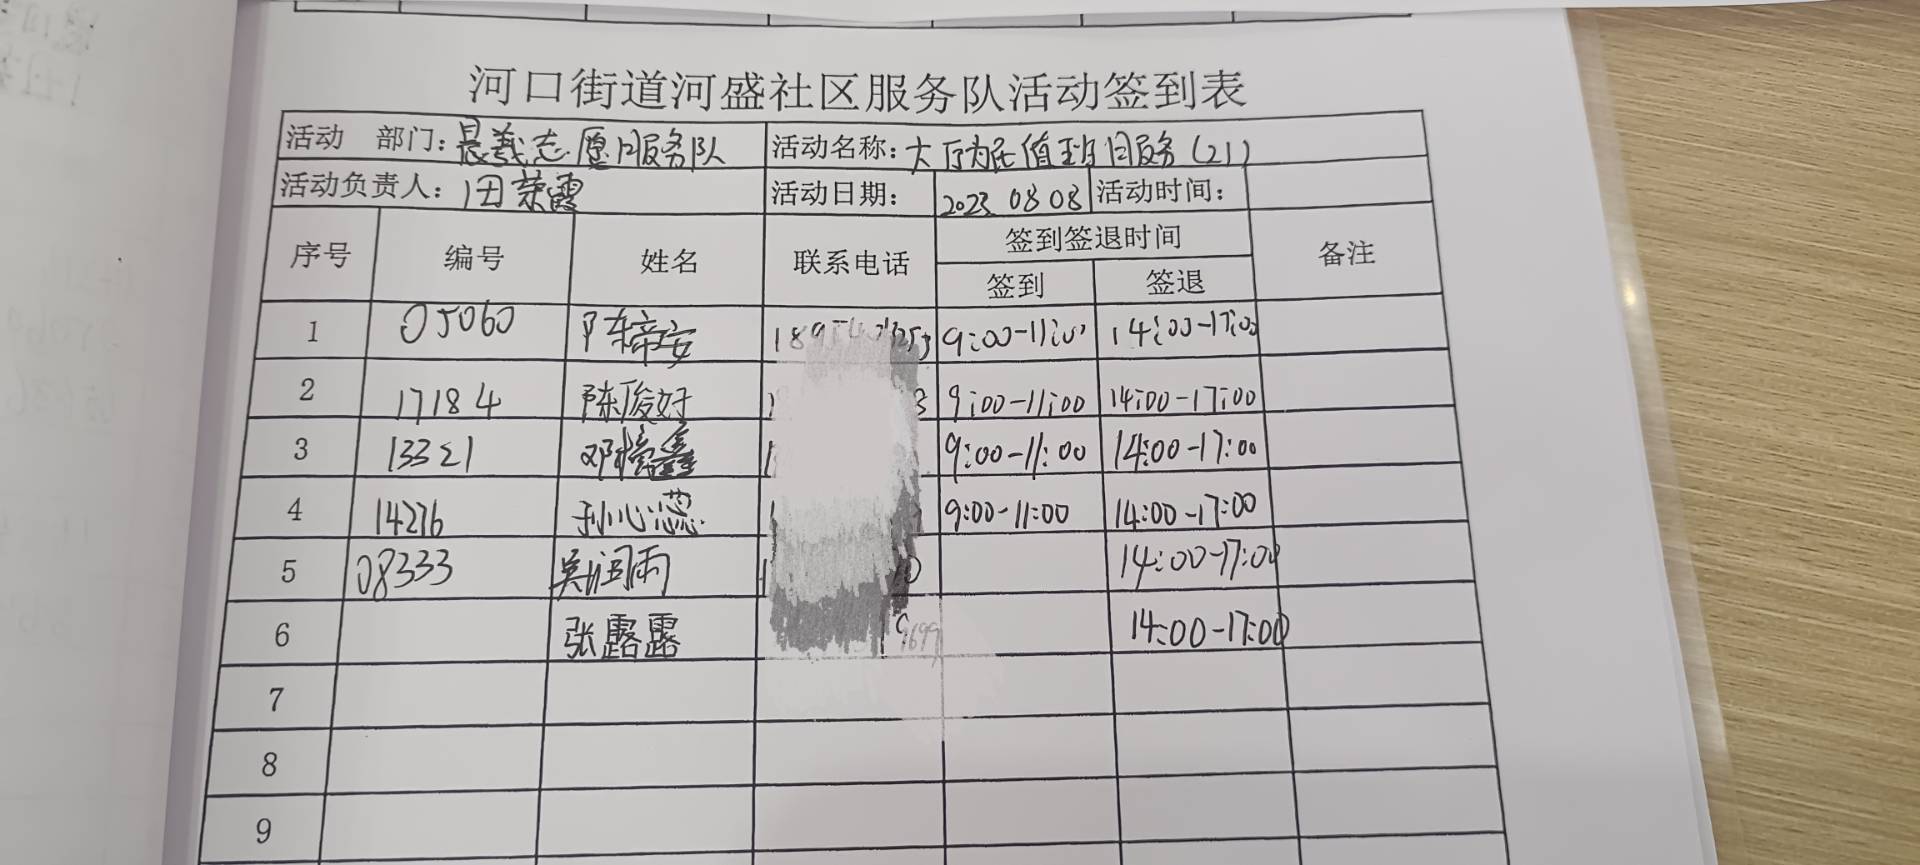 河口街道河盛社区服务队活动签到表
活动 部门：晨义志愿服务队 活动名称：大厅为民值班服务（21）
活动负责人：田荣霞 活动日期： 2023 08 08 活动时间：
序号 编号 姓名 联系电话 签到签退时间 备注
签到 签退
1 05060 陈帝安 9:00-11:00 14:00-17:00
2 17184 陈俊好 9:00-11:00 14:00-17:00
3 13321 邓鑫 9:00-11:00 14:00-17:00
4 14276 孙心蕊 9:00-11:00 14:00-17:00
5 08333 吴润雨 14:00-17:00
6 张露露 9699 14:00-17:00
7
8
9